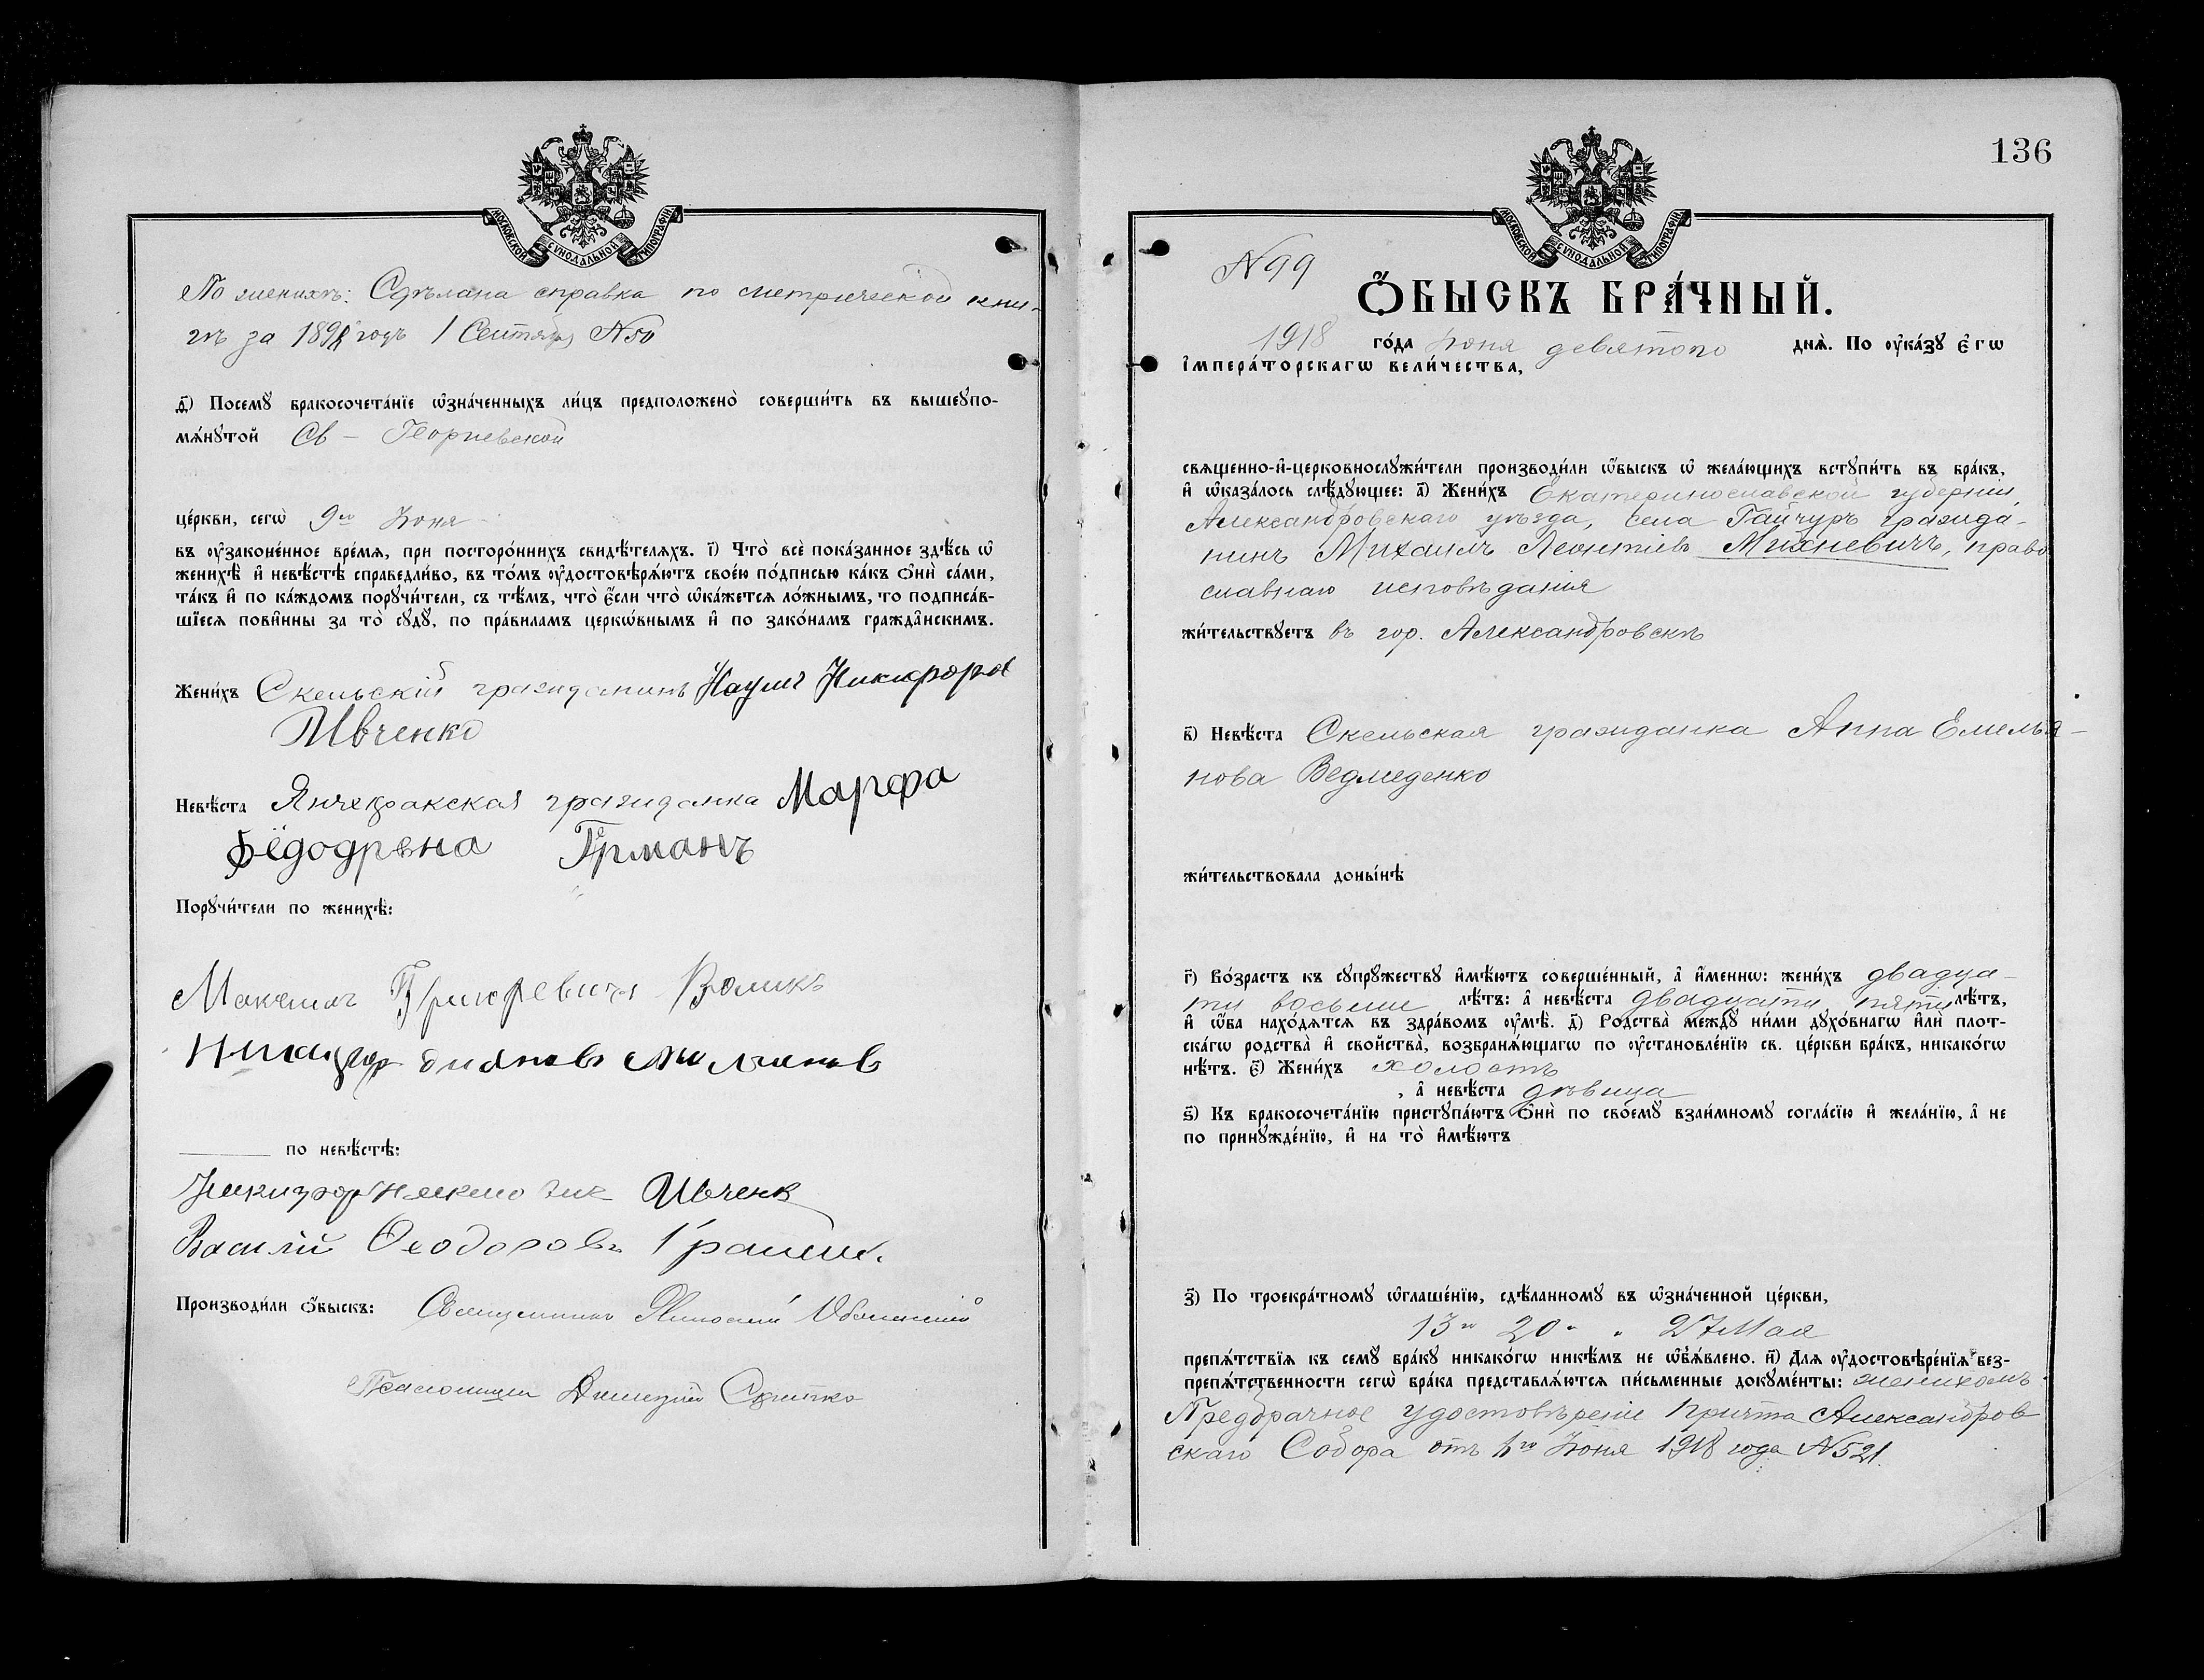 МОСКОВСКОЙ СѴНОДАЛЬНОЙ ТИПОГРАФІИ
По женихѣ: Сдѣлана справка по метрической кни-
гѣ за 1898 годъ 1 Сентября №50
д҃) Посемꙋ бракосочета́нїе ѡ҆зна́ченныхъ ли́цъ предположено̀ соверши́ть въ вышеꙋпо-
мѧ́нꙋтой Св - Георгиевской
це́ркви, сегѡ̀ 9го Іюня
въ ᲂу҆законе́нное вре́мѧ, при посторо́ннихъ свидѣ́телѧхъ. і҃) Что̀ всѐ пока́занное здѣ́сь ѡ҆
женихѣ̀ и҆ невѣ́стѣ справедли́во, въ то́мъ ᲂу҆достовѣрѧ́ютъ свое́ю по́дписью ка́къ ѻ҆нѝ са́ми,
та́къ и҆ по ка́ждомъ порꙋчи́тели, съ тѣ́мъ, что̀ є҆́сли что̀ ѡ҆ка́жетсѧ ло́жнымъ, то подписа́в-
шїесѧ пови́нны за то̀ сꙋдꙋ̀, по пра́виламъ церкѡ́внымъ и҆ по зако́намъ гражда́нскимъ.
Жени́хъ Скельскій гражданинъ Наумъ Никифоров
Ивченко
Невѣ́ста Янчекракская гражданка Марфа
Фёдодрвна Грманъ
Порꙋчи́тели по женихѣ̀:
Максим Григоревичъ Волик
по невѣ́стѣ:
Никифор Ивченк
Василій Ѳеодоровъ
Производи́ли ѻ҆́быскъ: Священникъ
Псаломщик Димитрій
136
МОСКОВСКОЙ СѴНОДАЛЬНОЙ ТИПОГРАФІИ
№99
Ѻ҆́БЫСКЪ БРА́ЧНЫЙ.
1918 го́да Іюня девятого днѧ̀. По ᲂу҆ка́зꙋ є҆гѡ̀
і҆мпера́торскагѡ вели́чества,
свѧще́нно-и҆-церковнослꙋжи́тели производи́ли ѻ҆́быскъ ѡ҆ жела́ющихъ встꙋпи́ть въ бра́къ,
и҆ ѡ҆каза́лось слѣ́дꙋющее: а҃) Жени́хъ Екатеринославской губерніи,
Александровскаго уѣзда, села Гайчуръ гражда-
нинъ Михаилъ Леонтіевъ Михневичъ, право
славнаго исповѣданія
жи́тельствꙋетъ въ гор. Александровскѣ
в҃) Невѣ́ста Скельская гражданка Анна Емелья-
нова Ведмеденко
жи́тельствовала донынѣ
г҃) Во́зрастъ къ сꙋпрꙋ́жествꙋ и҆мѣ́ютъ соверше́нный, а҆ и҆́менно: жени́хъ двадца-
ти восьми лѣ́тъ: а҆ невѣ́ста двадцати пяти лѣ́тъ,
и҆ ѻ҆́ба нахо́дѧтсѧ въ здра́вомъ ᲂу҆мѣ̀. д҃) Родства̀ междꙋ̀ ни́ми дꙋхо́внагѡ и҆лѝ плот-
ска́гѡ родства̀ и҆ свойства̀, возбранѧ́ющагѡ по ᲂу҆становле́нїю св. це́ркви бра́къ, никако́гѡ
нѣ́тъ. є҃) Жени́хъ холостъ
, а҆ невѣ́ста дѣвица
ѕ҃) Къ бракосочета́нїю пристꙋпа́ютъ ѻ҆нѝ по своемꙋ̀ взаи́мномꙋ согла́сїю и҆ жела́нїю, а҆ не
по принꙋжде́нїю, и҆ на то̀ и҆мѣ́ютъ
з҃) По троекра́тномꙋ ѡ҆глаше́нїю, сдѣ́ланномꙋ въ ѡ҆зна́ченной це́ркви,
13го 20" " 27 Мая
препѧ́тствїѧ къ семꙋ̀ бра́кꙋ никако́гѡ никѣ́мъ не ѡ҆б̾ѧ́влено. и҃) Длѧ ᲂу҆достовѣре́нїѧ без-
препѧ́тственности сегѡ̀ бра́ка представлѧ́ютсѧ пи́сьменные докꙋме́нты: женихомъ
Предбрачное удостовѣреніе причта Александров
скаго Собора отъ Іюня 1918 года №521.